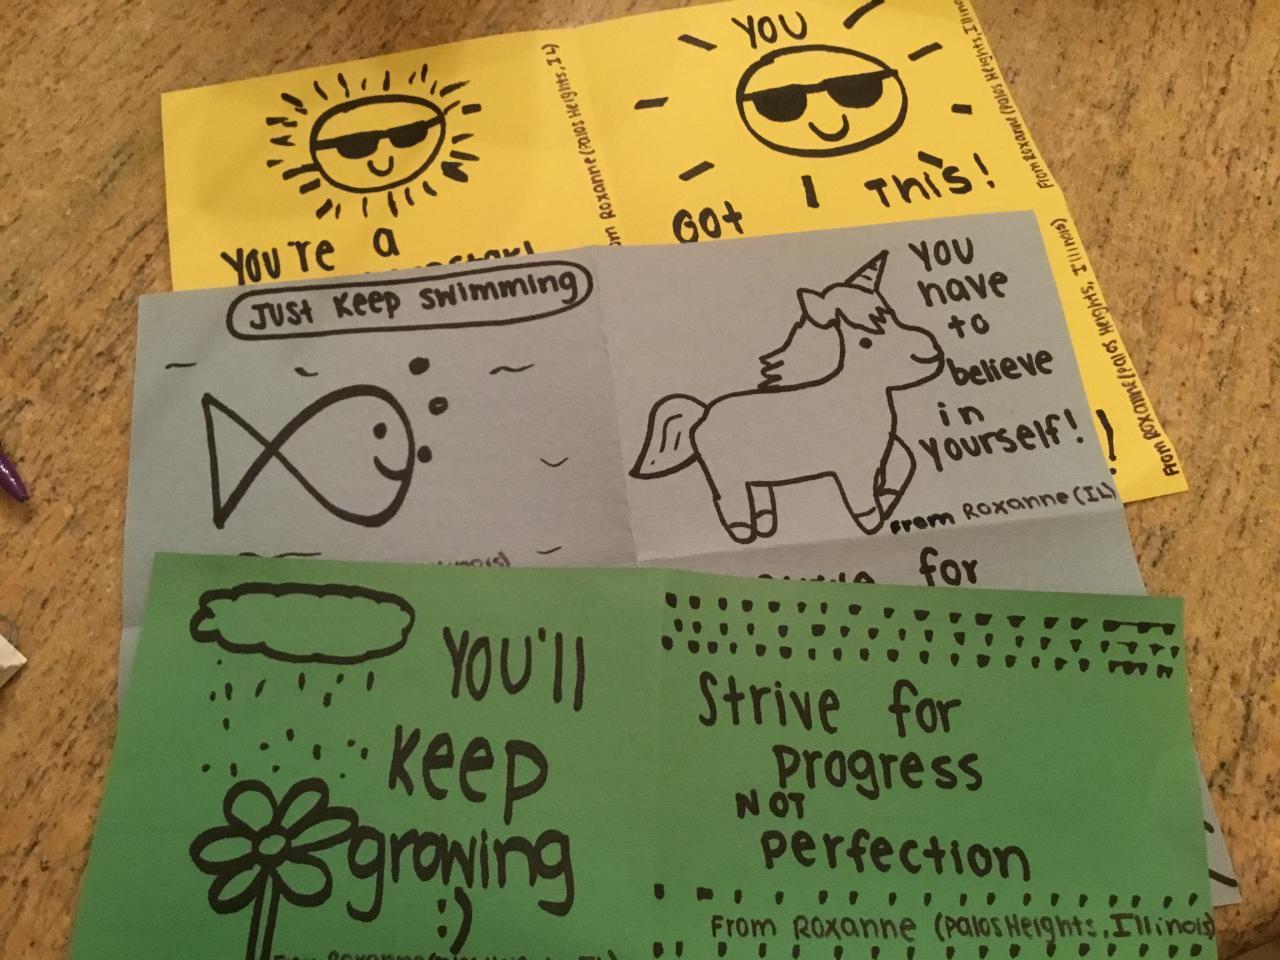 YOU
GOt
This!
From Roxanne (Palos Heights, Illinois)
Roxanne (Palos Heights, IL)
You're a
Just Keep Swimming
You
have
to
believe
in
yourself!
From Roxanne (IL)
for
!
From Roxanne (Palos Heights, Illinois)
YOU'll
Keep
growing
:)
Strive for
Progress
NOT
Perfection
From Roxanne (Palos Heights, Illinois)